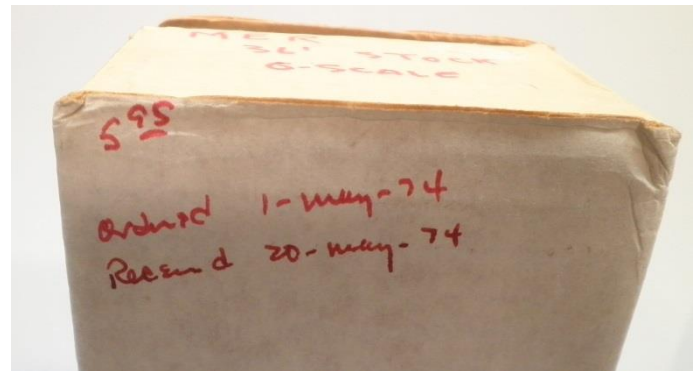 MLR
36' STOCK
G-SCALE
5 95
Ordered 1-May-74
Received 20-May-74